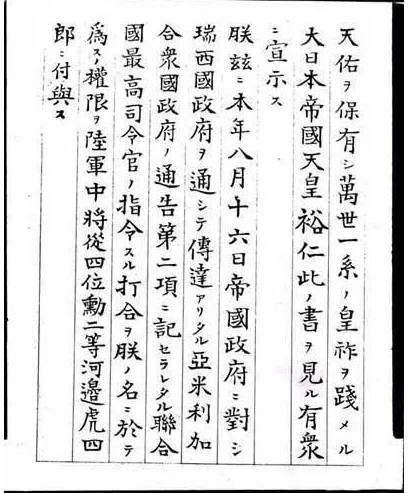 天佑ヲ保有シ萬世一系ノ皇祚ヲ踐メル
大日本帝國天皇裕仁此ノ書ヲ見ル有衆
ニ宣示ス
朕玆ニ本年八月十六日帝國政府ニ對シ
瑞西國政府ヲ通シテ傳達アリタル亞米利加
合衆國政府ノ通告第二項ニ記セラレタル聯合
國最高司令官ノ指令スル打合ヲ朕ノ名ニ於テ
爲スノ權限ヲ陸軍中將從四位勳二等河邊虎四
郎ニ付與ス